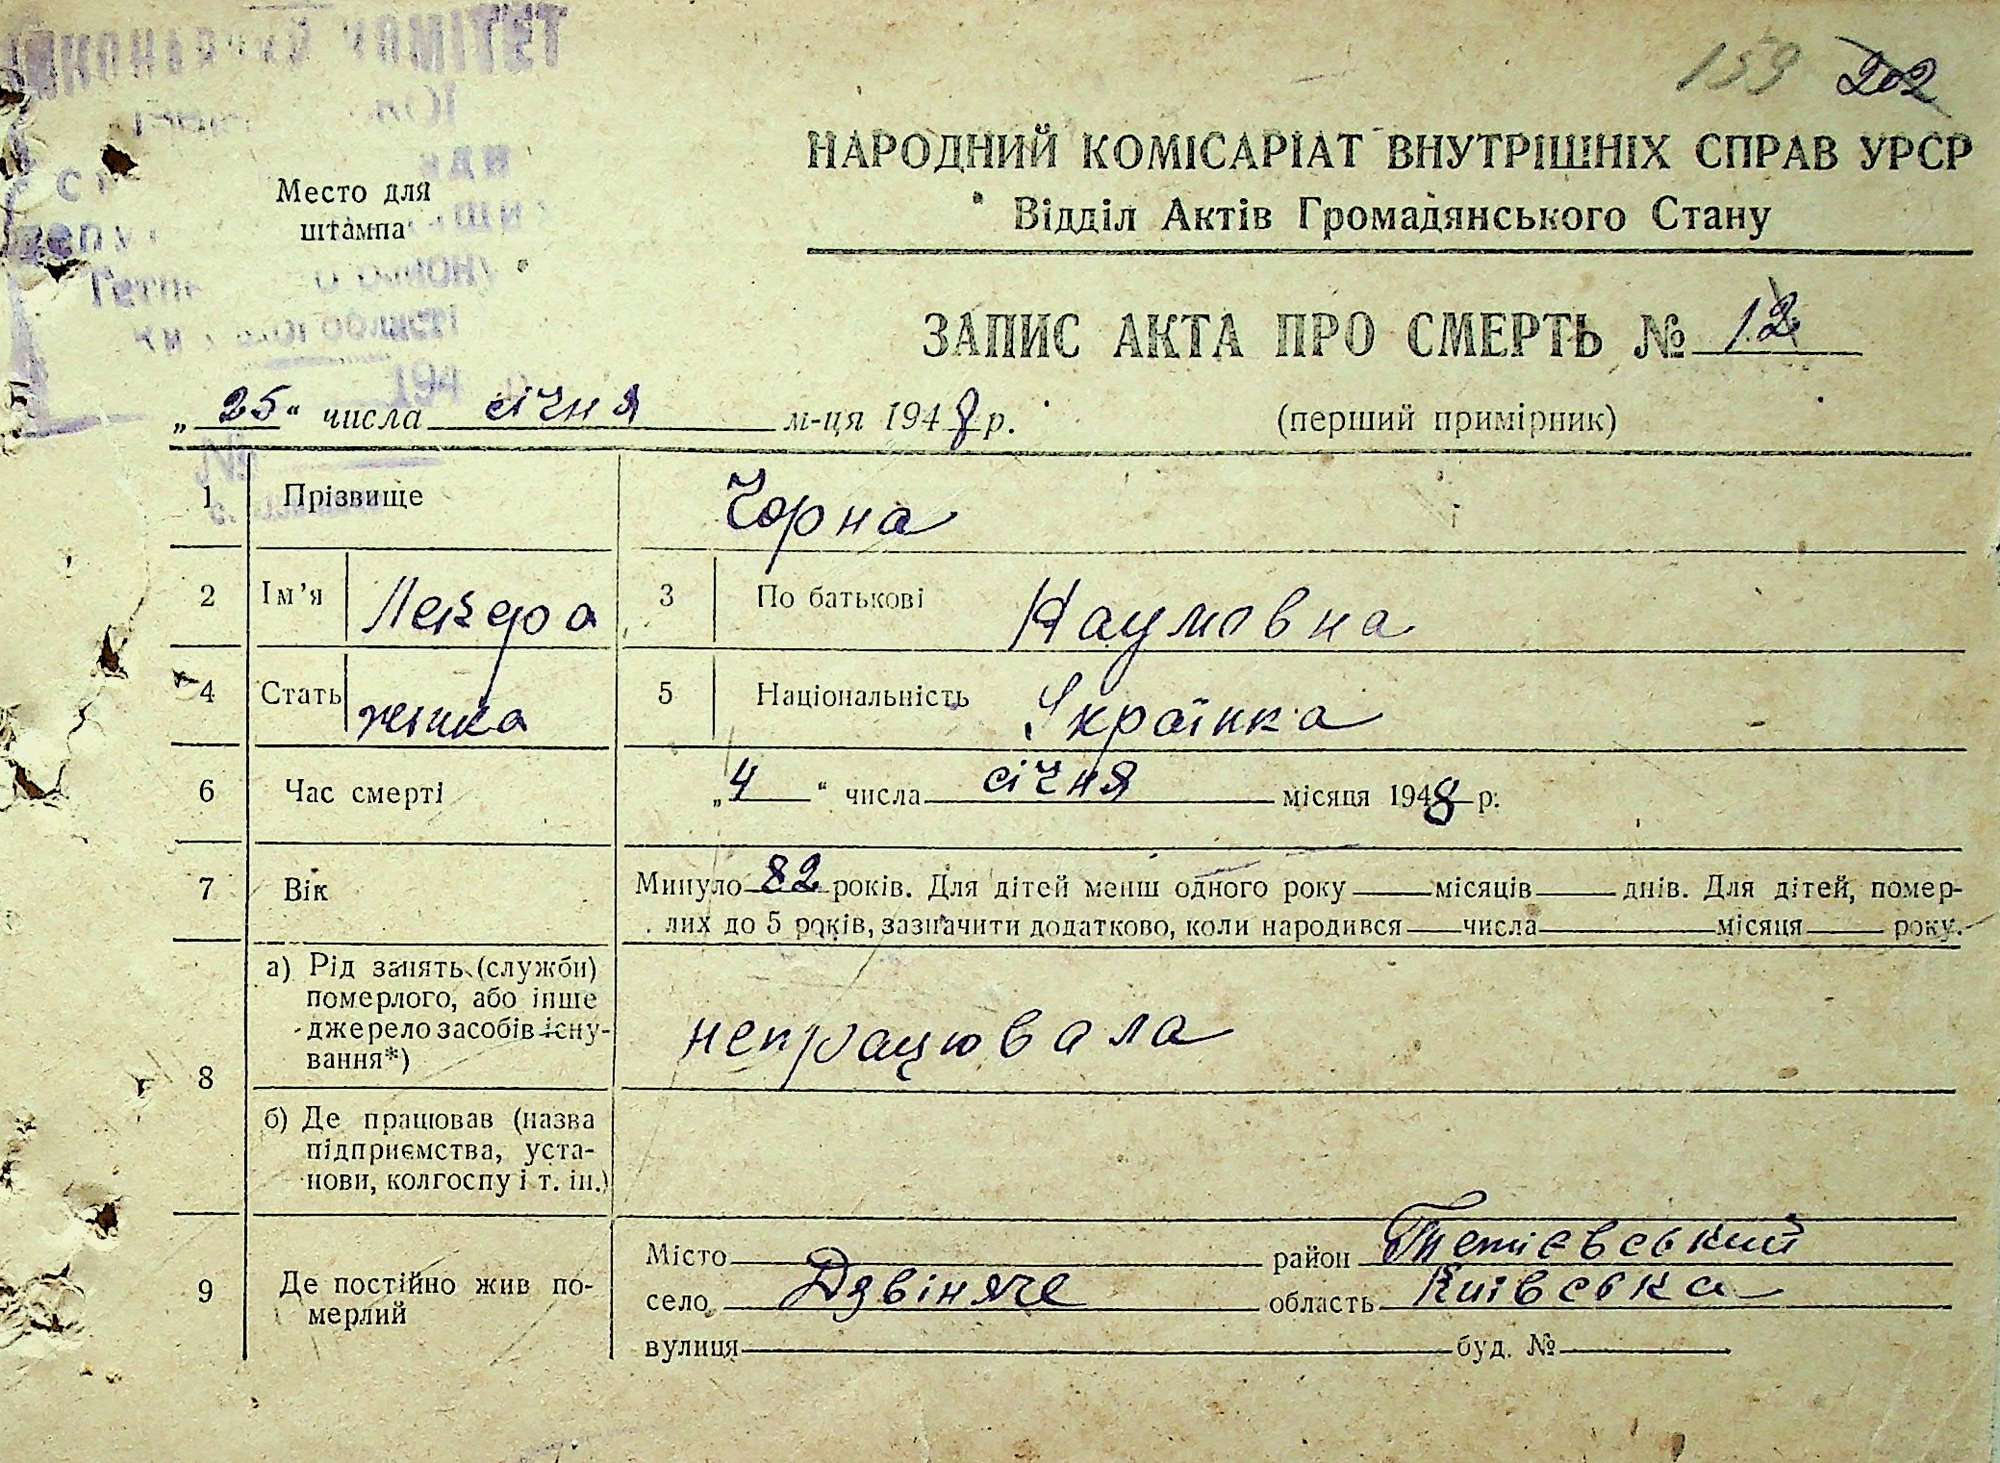 159 202
НАРОДНИЙ КОМІСАРІАТ ВНУТРІШНІХ СПРАВ УРСР
Відділ Актів Громадянського Стану
Место для
штампа
ЗАПИС АКТА ПРО СМЕРТЬ № 12
„25“ числа січня м-ця 1948 р.
(перший примірник)
1 Прізвище Чорна
2 Ім’я 3 По батькові Наумовна
4 Стать жінка 5 Національність Українка
6 Час смерті „4“ числа січня місяця 1948 р.
7 Вік Минуло 82 років. Для дітей менш одного року місяців днів. Для дітей, помер-
лих до 5 років, зазначити додатково, коли народився числа місяця року.
8
а) Рід занять (служби)
померлого, або інше
джерело засобів існу-
вання*)
непрацювала
б) Де працював (назва
підприємства, уста-
нови, колгоспу і т. ін.)
9 Де постійно жив по-
мерлий
Місто район Тетієвський
село Дзвіняче область Київська
вулиця буд. №